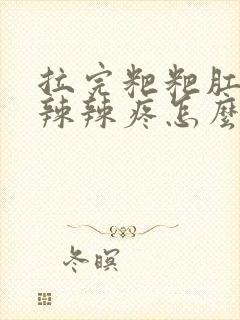 拉完粑粑肛
辣辣疼怎麼
冬暝